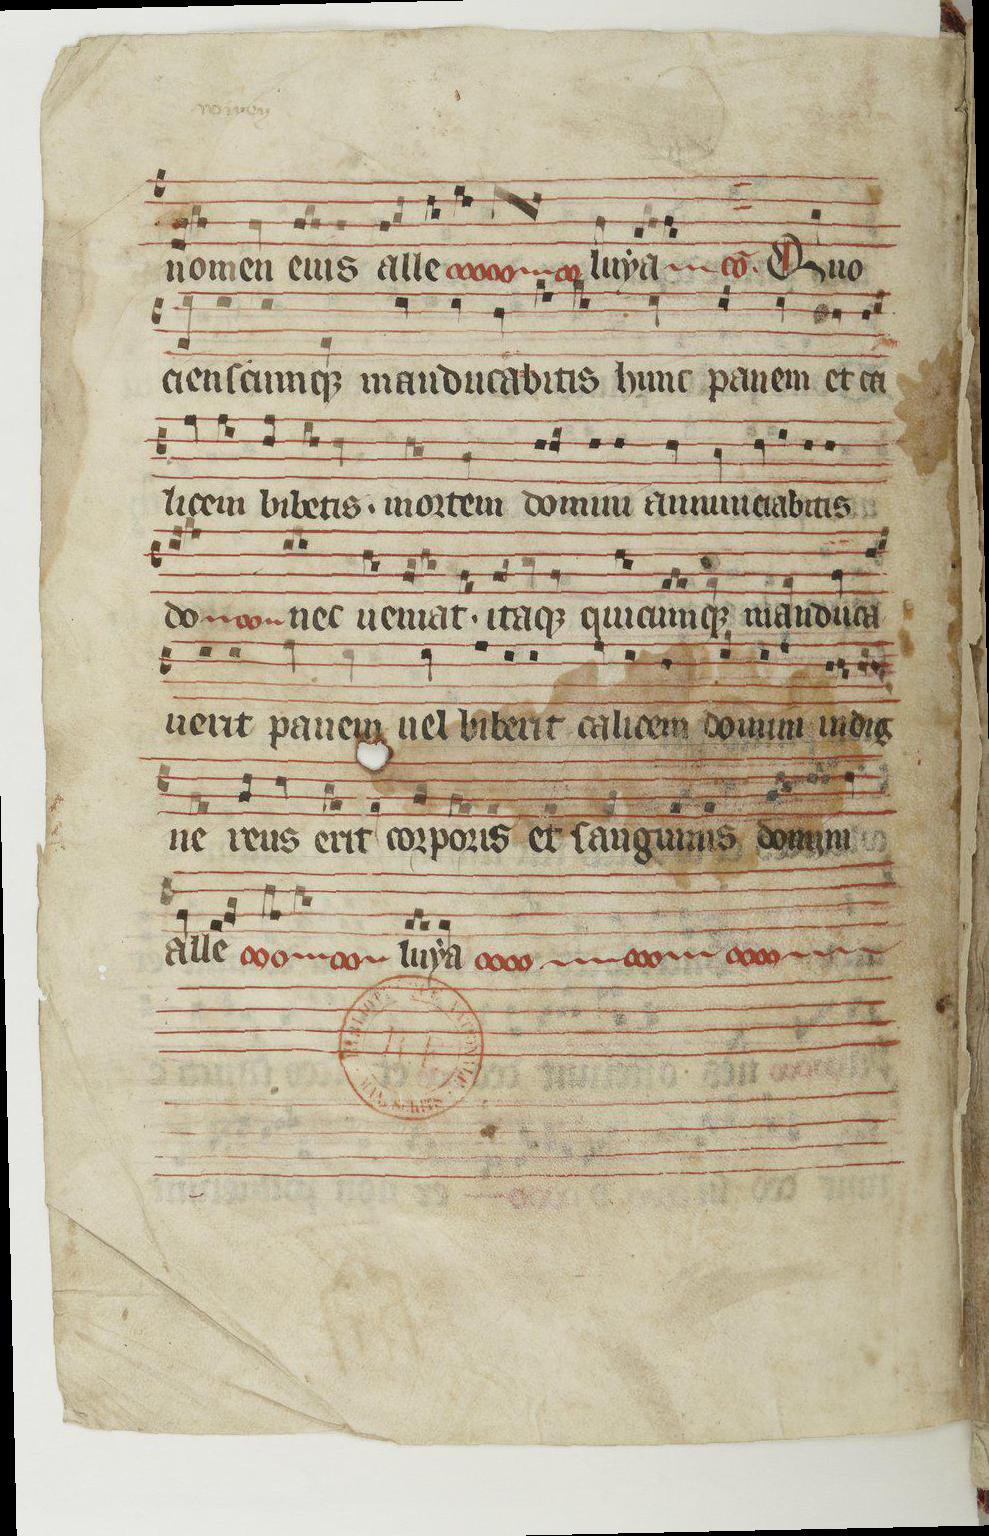 nomen eius alle luya co. Quo
cienscumqꝫ manducabitis hunc panem et ca
licem bibetis · mortem domini annunciabitis
do nec ueniat · itaqꝫ quicumqꝫ manduca
uerit panem uel biberit calicem domini indig
ne reus erit corporis et sanguinis domini
alle luya